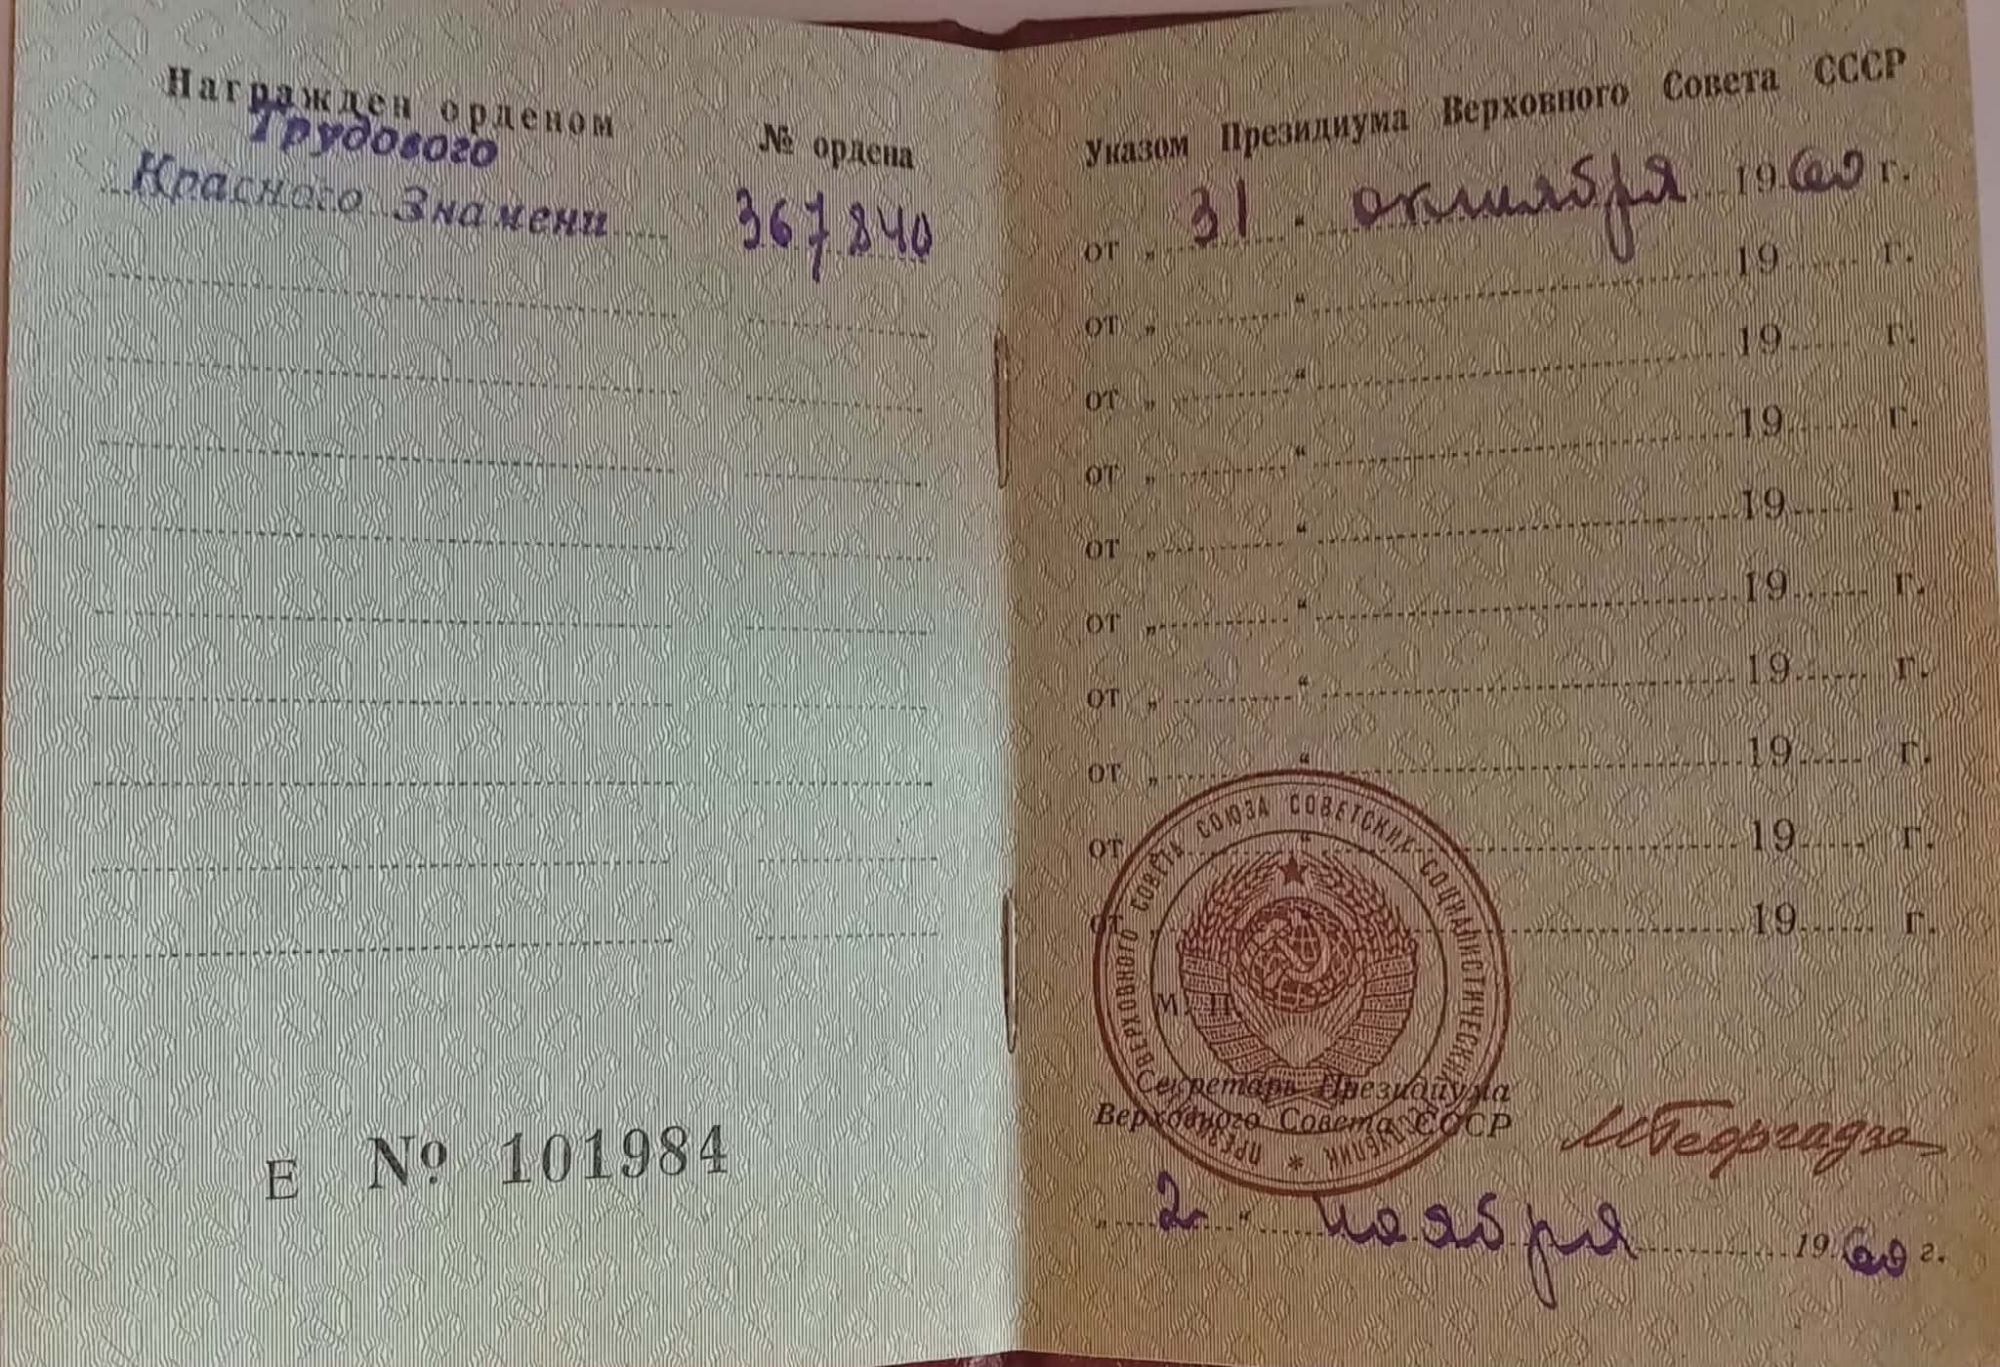 Награжден орденом № ордена
Трудового
Красного Знамени 367840
Е № 101984
Указом Президиума Верховного Совета СССР
от „ 31 " октября 1960 г.
от „ " 19 г.
от „ " 19 г.
от „ " 19 г.
от „ " 19 г.
от „ " 19 г.
от „ " 19 г.
от „ " 19 г.
от „ " 19 г.
от „ " 19 г.
ПРЕЗИДИУМ ВЕРХОВНОГО СОВЕТА СОЮЗА СОВЕТСКИХ СОЦИАЛИСТИЧЕСКИХ РЕСПУБЛИК *
М. П.
Секретарь Президиума
Верховного Совета СССР МГеоргадзе
„ 2 " ноября 1960 г.